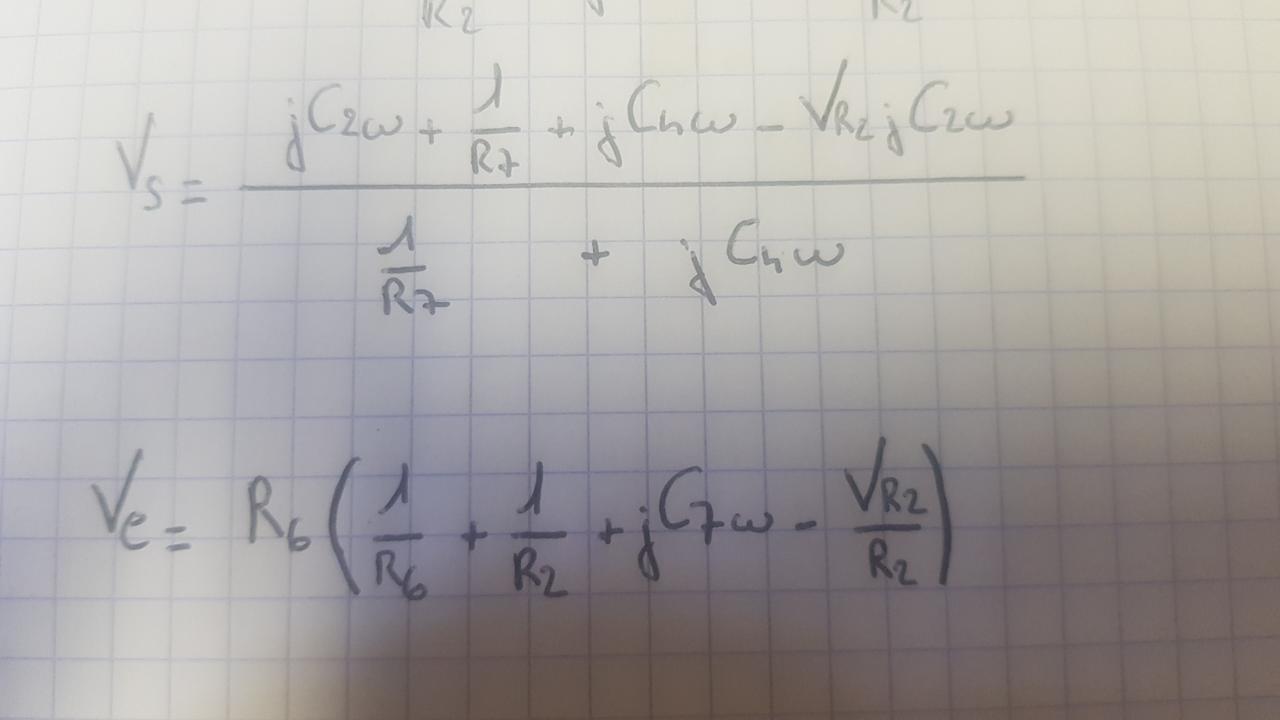 R2 R2
Vs = (jC2ω + 1/R7 + jC4ω - VR2 jC2ω) / (1/R7 + jC4ω)
Ve = R6 (1/R6 + 1/R2 + jC7ω - VR2/R2)